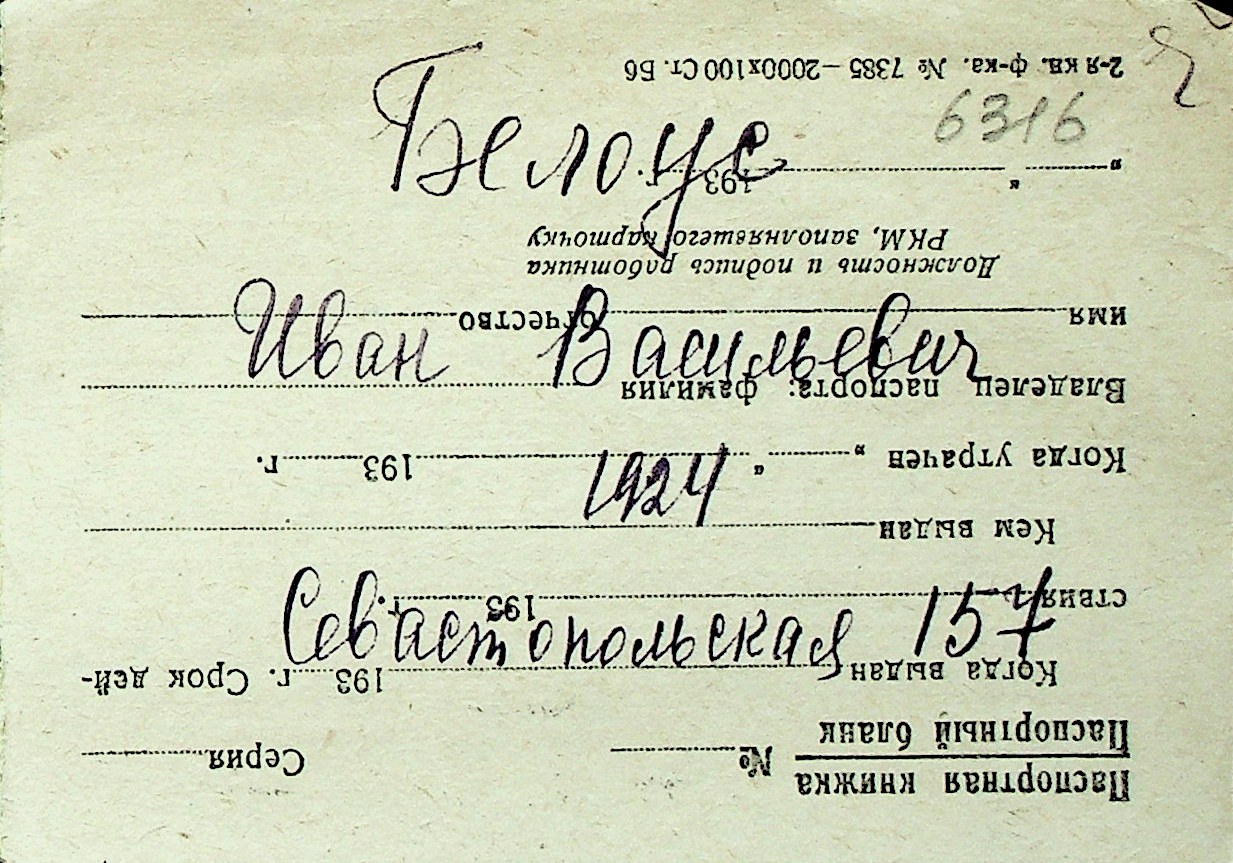 Белоус
Иван Васильевич
1924
Севастопольская 157
6316
Паспортная книжка
Паспортный бланк № Серия
Когда выдан 193 г. Срок дей-
ствия 193 г.
Кем выдан
Когда утрачен „ “ 193 г.
Владелец паспорта: фамилия
имя отчество
Должность и подпись работника
РКМ, заполнявшего карточку
„ “ 193 г.
2-я кв. ф-ка. № 7385—2000х100 Ст. Б6